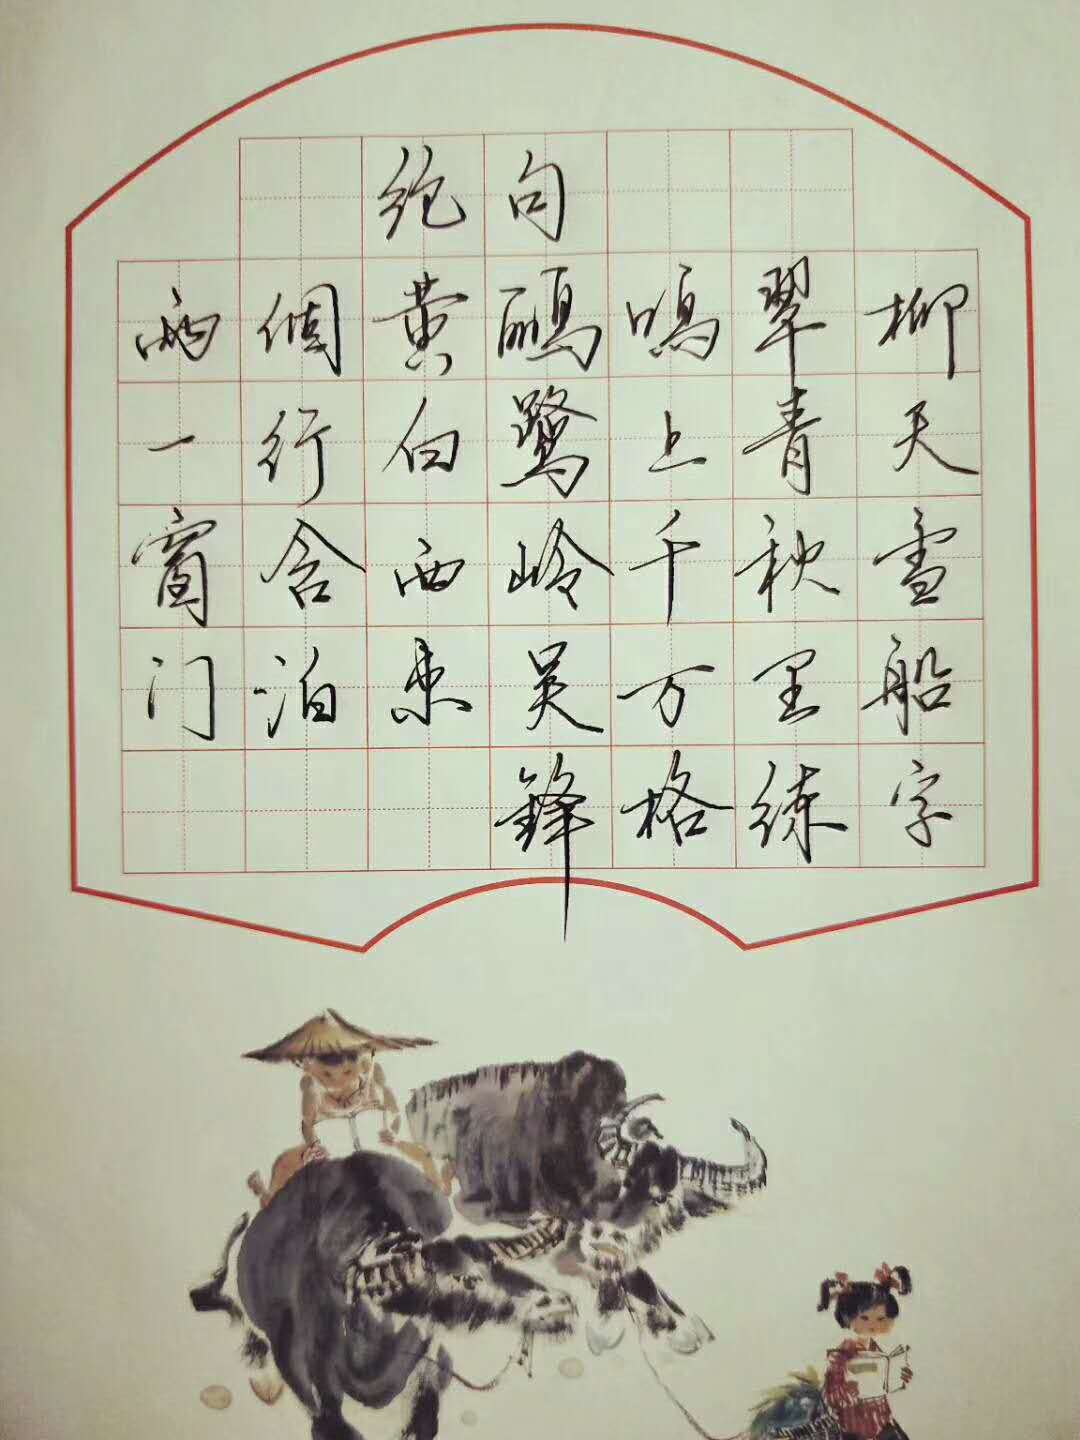 绝句
两個黄鹂鸣翠柳
一行白鹭上青天
窗含西岭千秋雪
门泊东吴万里船
锋格练字